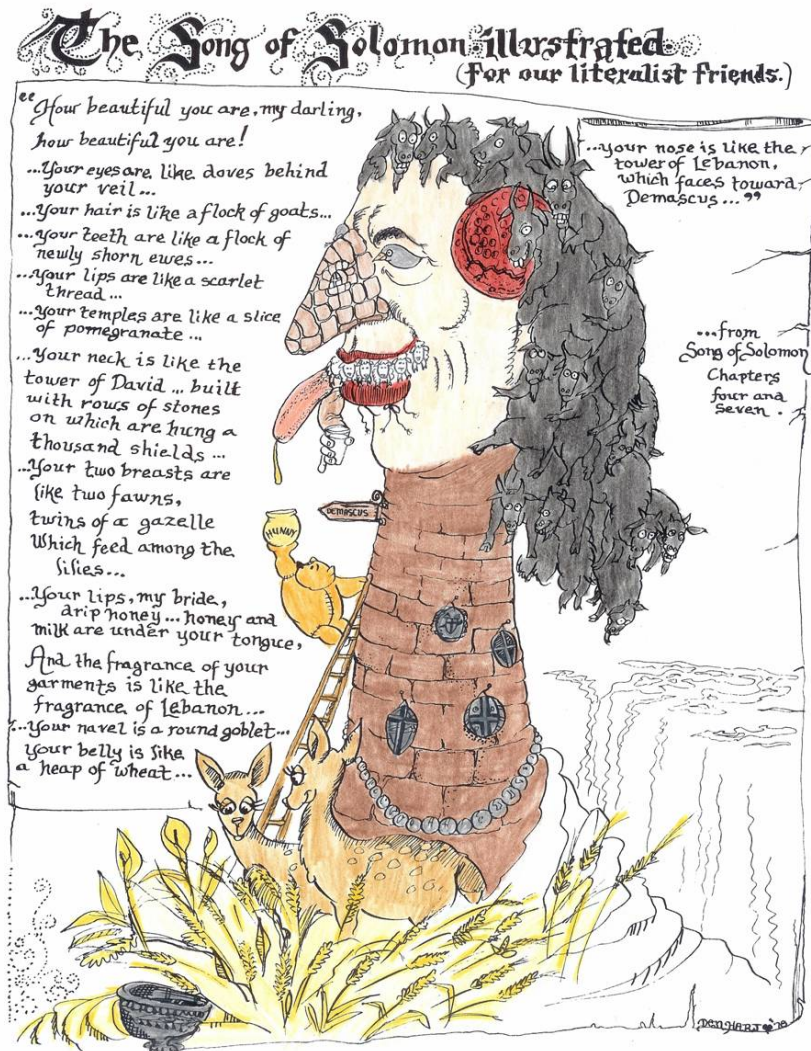 The Song of Solomon illustrated.
(for our literalist friends.)
"How beautiful you are, my darling,
how beautiful you are!
...Your eyes are like doves behind
your veil...
...Your hair is like a flock of goats...
...Your teeth are like a flock of
newly shorn ewes...
...Your lips are like a scarlet
thread...
...Your temples are like a slice
of pomegranate...
...Your neck is like the
tower of David... built
with rows of stones
on which are hung a
thousand shields...
...Your two breasts are
like two fawns,
twins of a gazelle
Which feed among the
lilies...
...Your lips, my bride,
drip honey... honey and
milk are under your tongue,
And the fragrance of your
garments is like the
fragrance of Lebanon...
...Your navel is a round goblet...
your belly is like
a heap of wheat...
...your nose is like the
tower of Lebanon,
which faces toward
Demascus..."
...from
Song of Solomon
Chapters
four and
Seven.
DEMASCUS
HUNNY
DEN HART '78